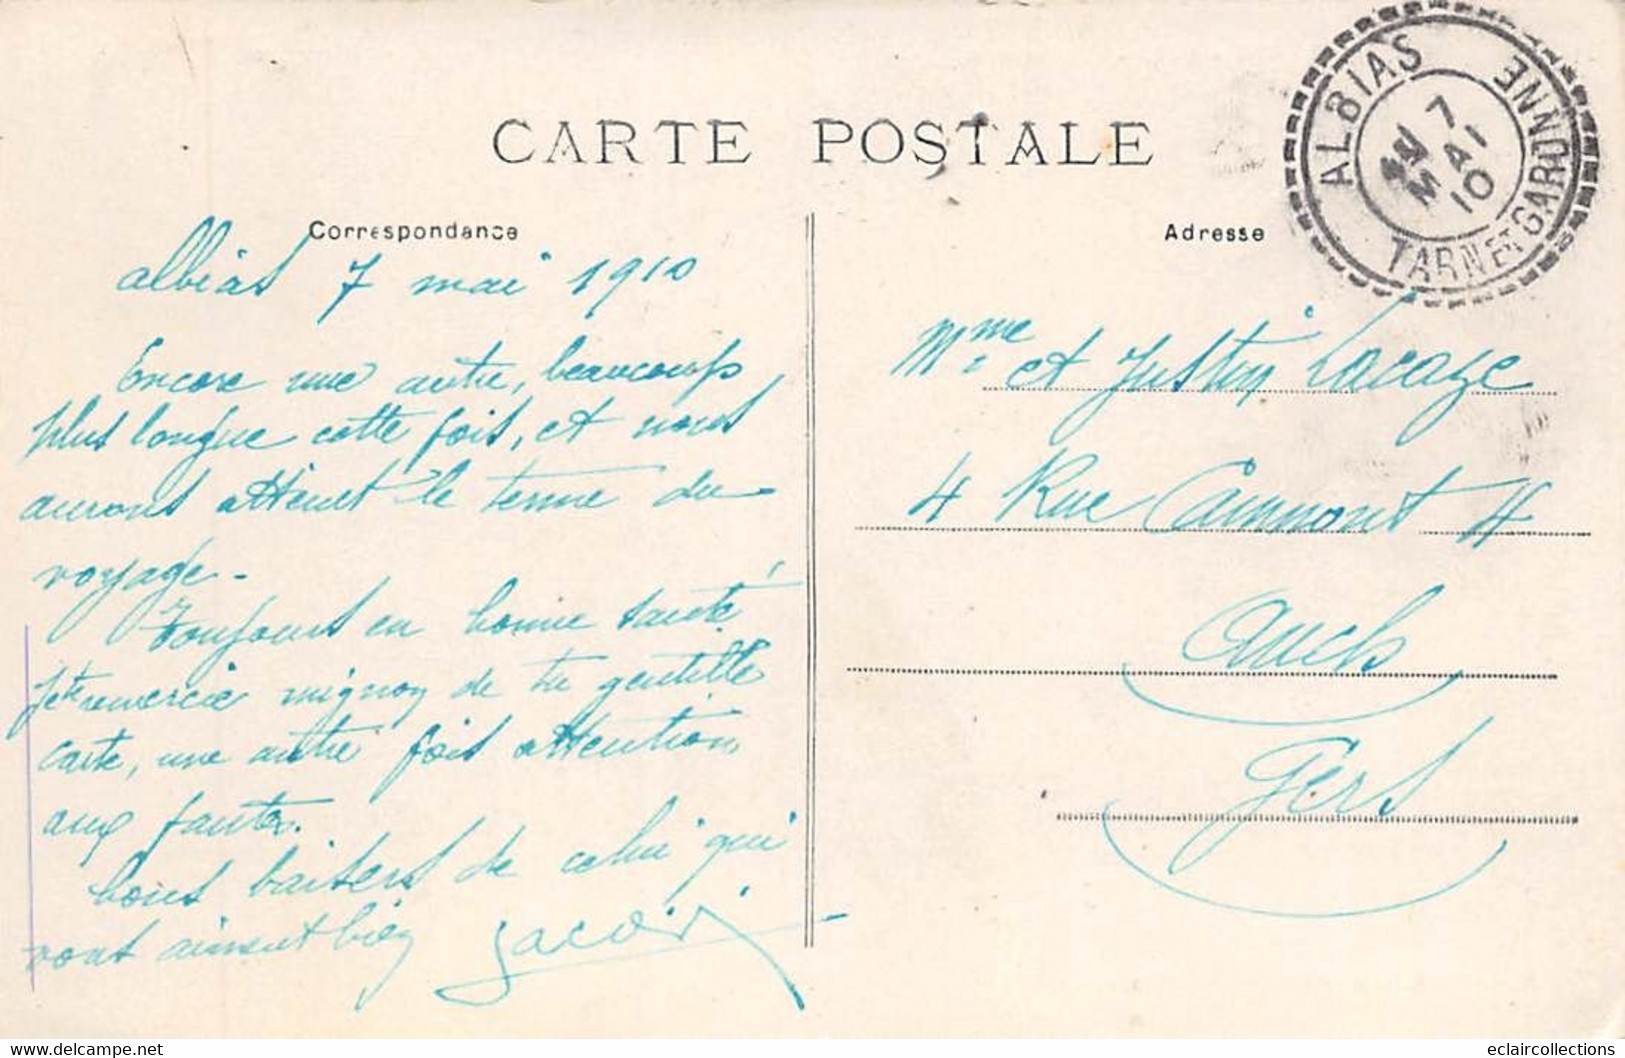 CARTE POSTALE
Correspondance
Adresse
ALBIAS
TARN ET GARONNE
7
MAI
10
albias 7 mai 1910
Encore une autre, beaucoup
plus longue cette fois, et nous
aurons atteint le terme du
voyage.
Toujours en bonne santé
je te remercie mignon de ta gentille
carte, une autre fois attention
aux fautes.
bons baisers de celui qui
vous aiment bien
Mme et Justin Lacaze
4 Rue Caumont 4
Auch
Gers
www.delcampe.net
eclaircollections